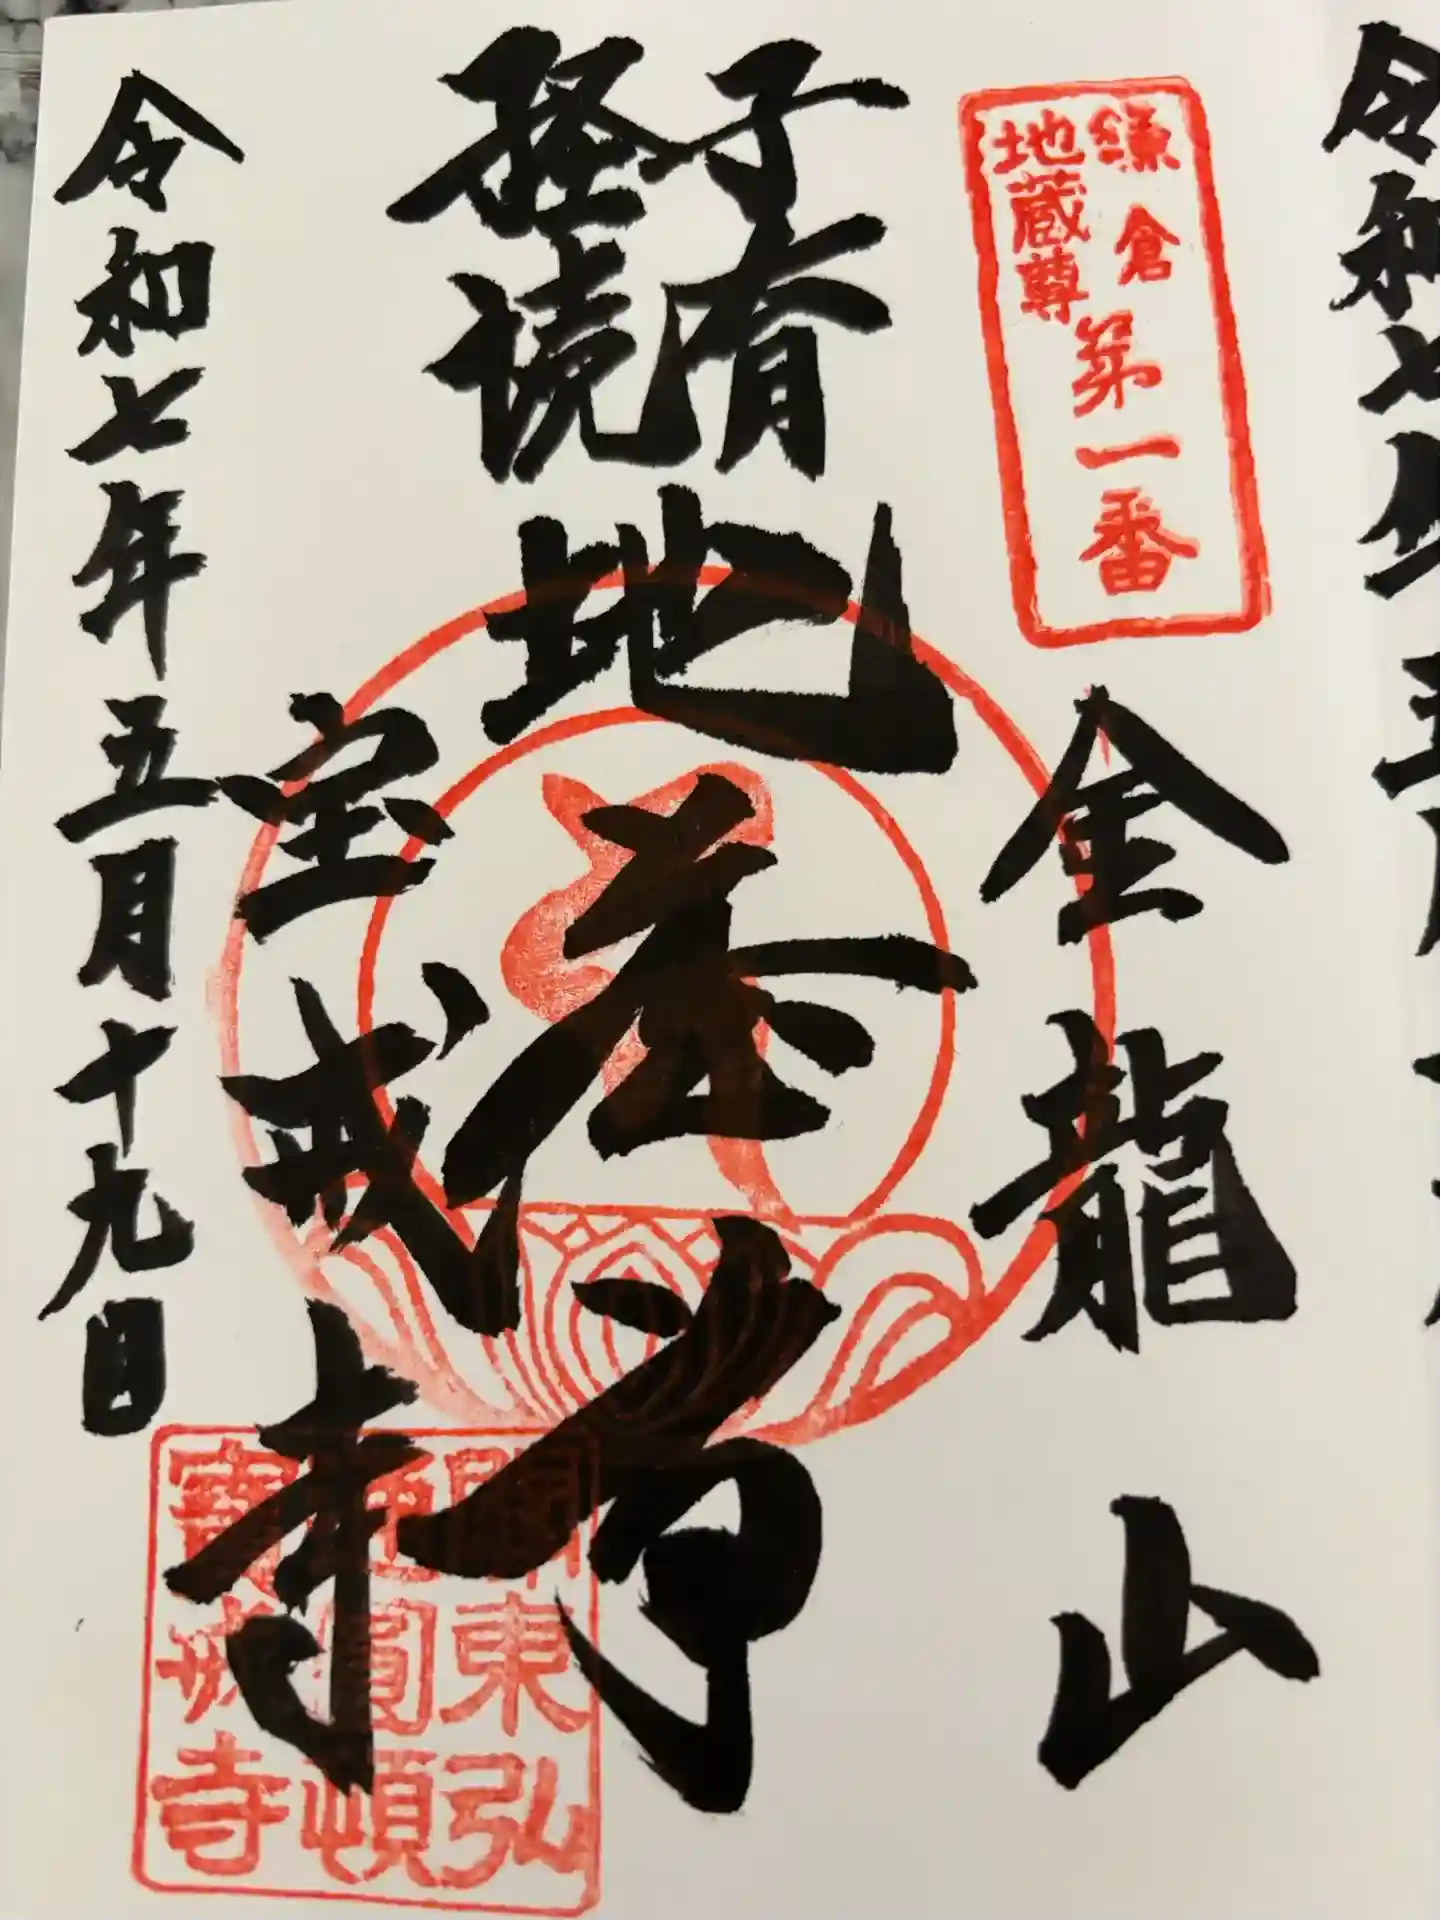 鎌倉
地蔵尊
第一番
金龍山
子育
経読
地蔵尊
宝戒寺
令和七年五月十九日
關東弘
圓頓
寶戒寺
令和七年五月